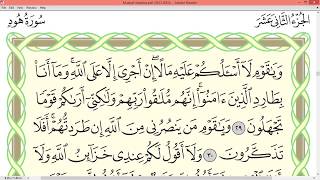 سُورَةُ هُودٍ
الجُزْءُ الثَّانِي عَشَرَ
وَيَٰقَوْمِ لَآ أَسْـَٔلُكُمْ عَلَيْهِ مَالًا إِنْ أَجْرِيَ إِلَّا عَلَى ٱللَّهِ وَمَآ أَنَا۠
بِطَارِدِ ٱلَّذِينَ ءَامَنُوٓا۟ إِنَّهُم مُّلَٰقُوا۟ رَبِّهِمْ وَلَٰكِنِّيٓ أَرَىٰكُمْ قَوْمًا
تَجْهَلُونَ ٢٩ وَيَٰقَوْمِ مَن يَنصُرُنِي مِنَ ٱللَّهِ إِن طَرَدتُّهُمْ أَفَلَا
تَذَكَّرُونَ ٣٠ وَلَآ أَقُولُ لَكُمْ عِندِي خَزَآئِنُ ٱللَّهِ وَلَآ